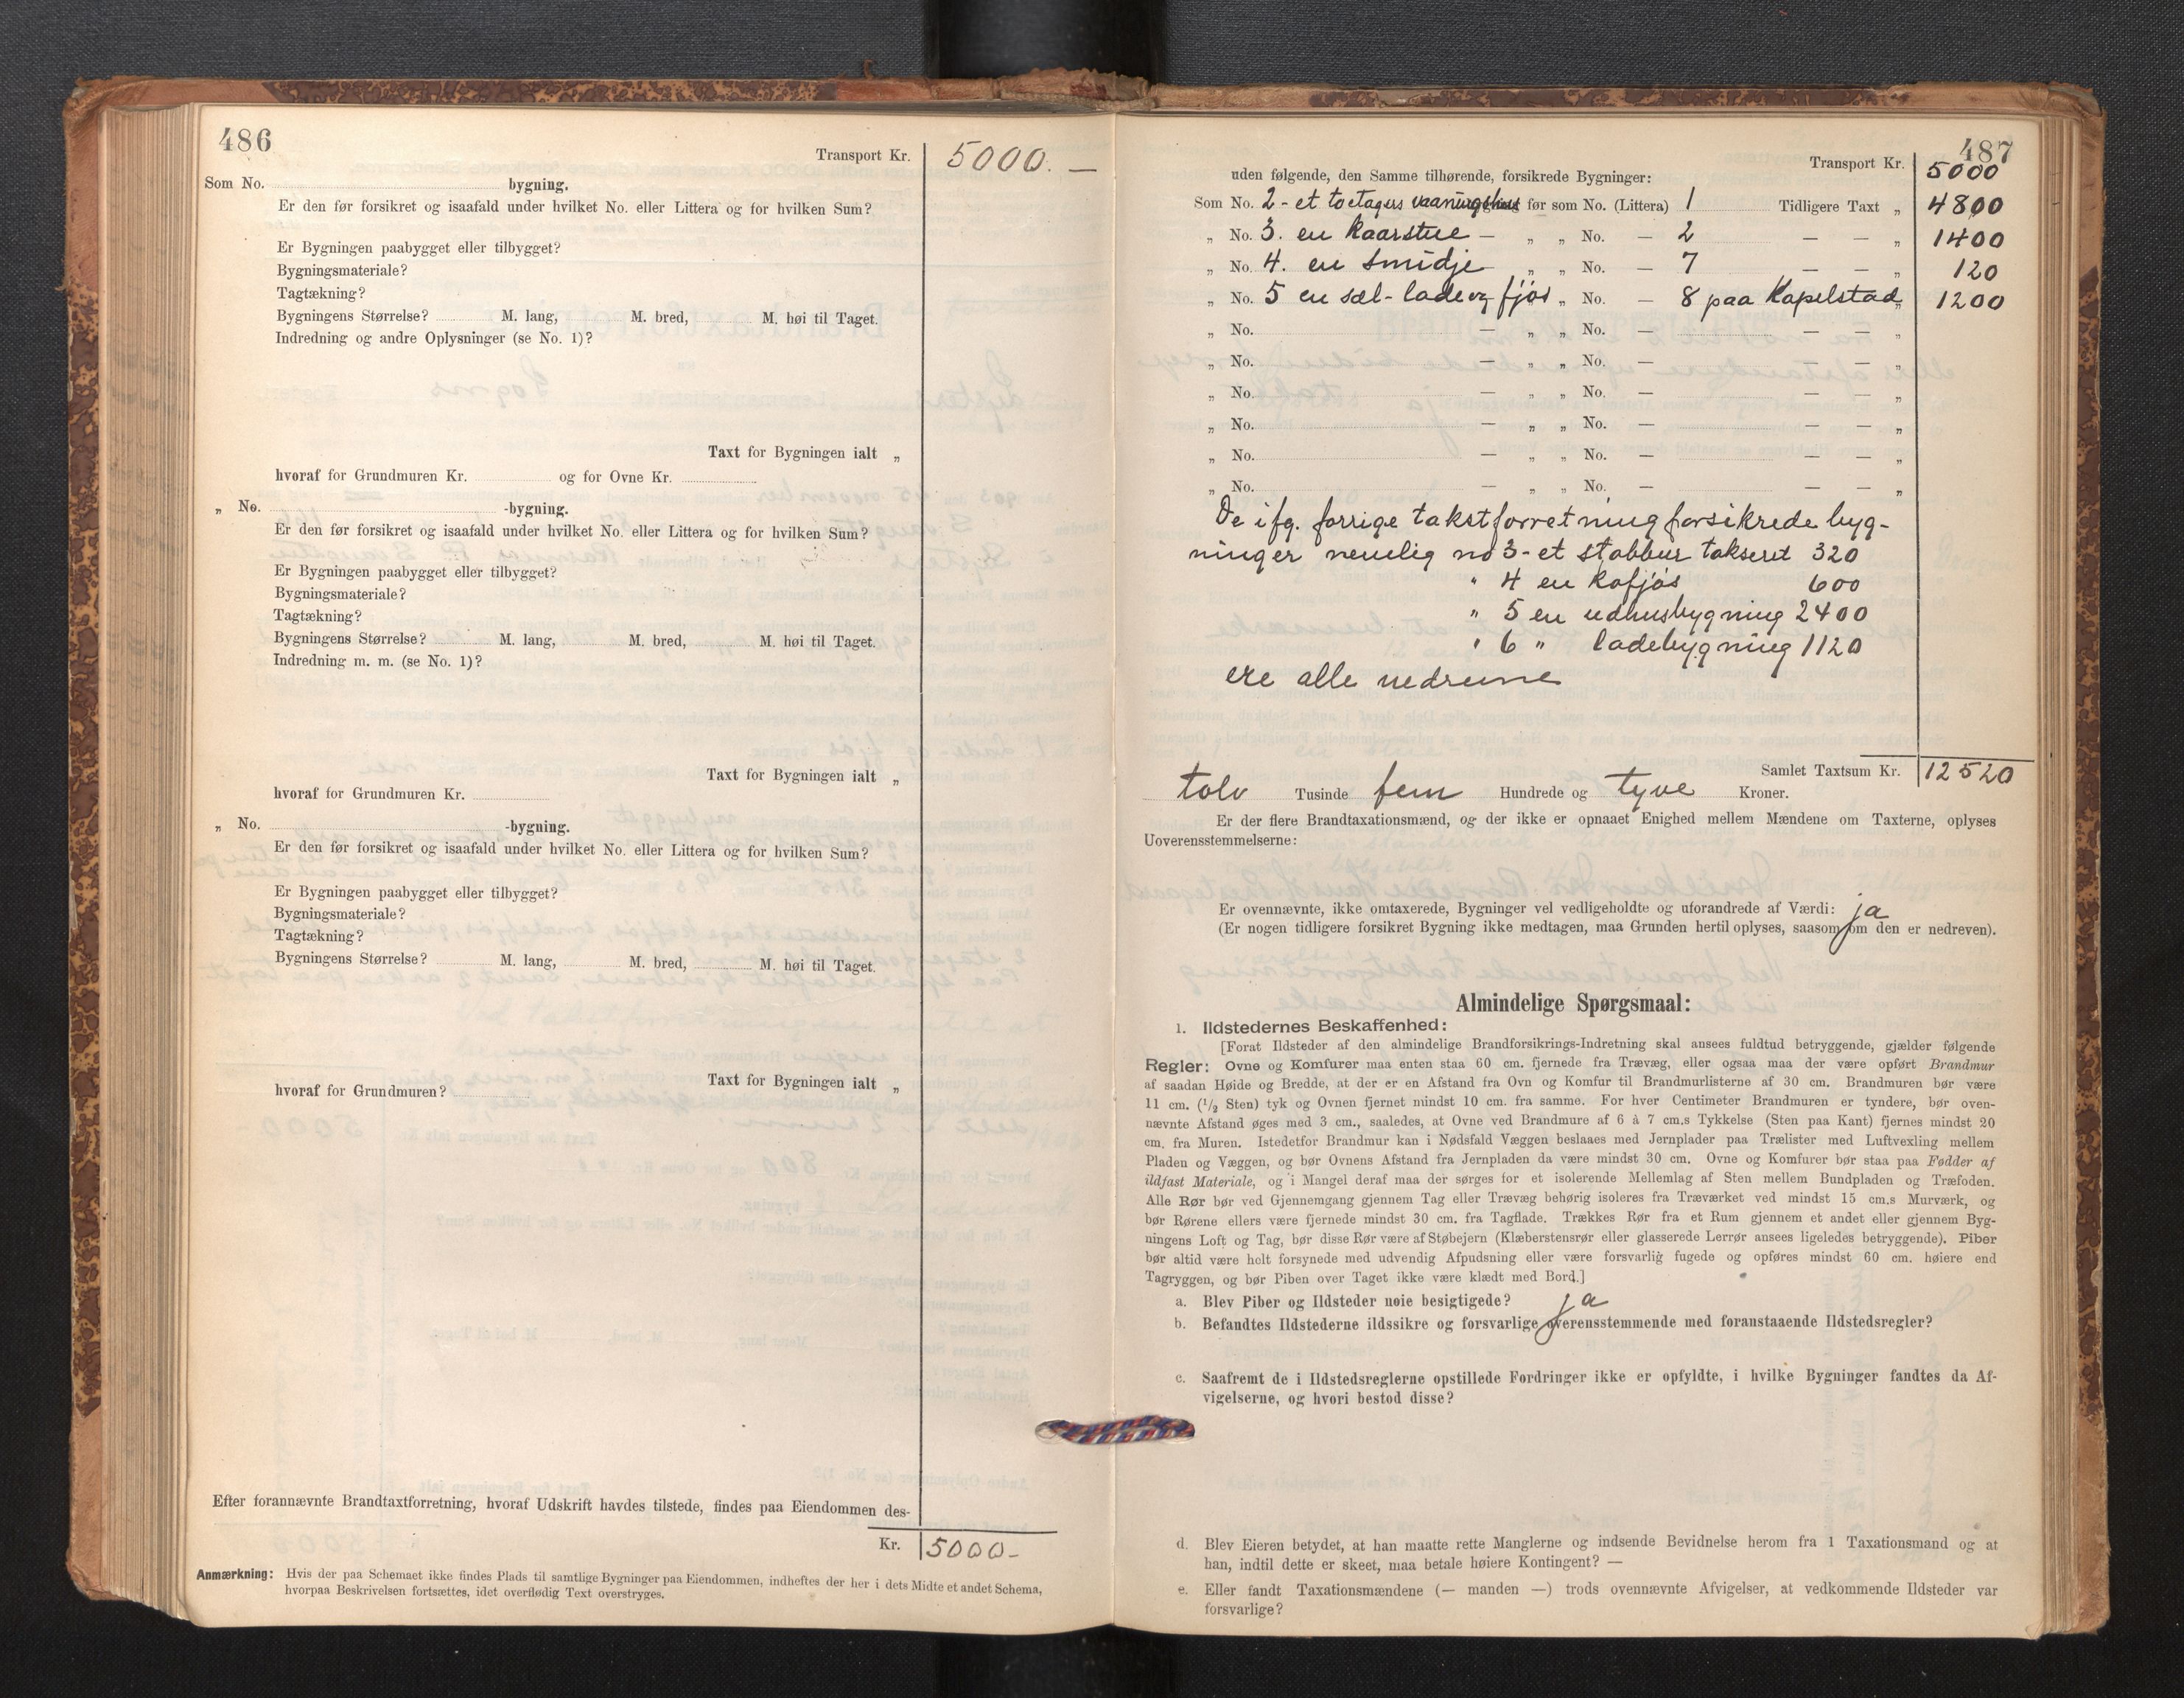 486
Transport Kr. 5000. —
Som No. bygning.
Er den før forsikret og isaafald under hvilket No. eller Littera og for hvilken Sum?
Er Bygningen paabygget eller tilbygget?
Bygningsmateriale?
Tagtækning?
Bygningens Størrelse? M. lang, M. bred, M. høi til Taget.
Indredning og andre Oplysninger (se No. 1)?
Taxt for Bygningen ialt „
hvoraf for Grundmuren Kr. og for Ovne Kr.
„ No. -bygning.
Er den før forsikret og isaafald under hvilket No. eller Littera og for hvilken Sum?
Er Bygningen paabygget eller tilbygget?
Bygningsmateriale?
Tagtækning?
Bygningens Størrelse? M. lang, M. bred, M. høi til Taget.
Indredning m. m. (se No. 1)?
Taxt for Bygningen ialt „
hvoraf for Grundmuren Kr.
„ No. -bygning.
Er den før forsikret og isaafald under hvilket No. eller Littera og for hvilken Sum?
Er Bygningen paabygget eller tilbygget?
Bygningsmateriale?
Tagtækning?
Bygningens Størrelse? M. lang, M. bred, M. høi til Taget.
Taxt for Bygningen ialt „
hvoraf for Grundmuren?
Efter forannævnte Brandtaxtforretning, hvoraf Udskrift havdes tilstede, findes paa Eiendommen des-
Kr. 5000-
Anmærkning: Hvis der paa Schemaet ikke findes Plads til samtlige Bygninger paa Eiendommen, indheftes der her i dets Midte et andet Schema,
hvorpaa Beskrivelsen fortsættes, idet overflødig Text overstryges.
487
Transport Kr. 5000
uden følgende, den Samme tilhørende, forsikrede Bygninger:
Som No. 2 - et toetagers vaaningshus før som No. (Littera) 1 Tidligere Taxt „ 4800
„ No. 3. en kaarstue — „ „ No. — 2 — — „ 1400
„ No. 4. en smidje — „ „ No. — 7 — — „ 120
„ No. 5 en sæl- lade og fjøs „ No. — 8 paa Kapelstad „ 1200
„ No. — „ „ No. — — — „
„ No. — „ „ No. — — — „
„ No. — „ „ No. — — — „
„ No. — „ „ No. — — — „
„ No. — „ „ No. — — — „
„ No. — „ „ No. — — — „
De ifg. forrige takstforretning forsikrede byg-
ninger nemlig no 3 - et stabbur takseret 320
" 4 en kofjøs 600
" 5 en udhusbygning 2400
" 6 " ladebygning 1120
ere alle nedrevne
Samlet Taxtsum Kr. 12520
tolv Tusinde fem Hundrede og tyve Kroner.
Er der flere Brandtaxationsmænd, og der ikke er opnaaet Enighed mellem Mændene om Taxterne, oplyses
Uoverensstemmelserne:
Er ovennævnte, ikke omtaxerede, Bygninger vel vedligeholdte og uforandrede af Værdi: ja
(Er nogen tidligere forsikret Bygning ikke medtagen, maa Grunden hertil oplyses, saasom om den er nedreven).
Almindelige Spørgsmaal:
1. Ildstedernes Beskaffenhed:
[Forat Ildsteder af den almindelige Brandforsikrings-Indretning skal ansees fuldtud betryggende, gjælder følgende
Regler: Ovne og Komfurer maa enten staa 60 cm. fjernede fra Trævæg, eller ogsaa maa der være opført Brandmur
af saadan Høide og Bredde, at der er en Afstand fra Ovn og Komfur til Brandmurlisterne af 30 cm. Brandmuren bør være
11 cm. (1/2 Sten) tyk og Ovnen fjernet mindst 10 cm. fra samme. For hver Centimeter Brandmuren er tyndere, bør oven-
nævnte Afstand øges med 3 cm., saaledes, at Ovne ved Brandmure af 6 à 7 cm.s Tykkelse (Sten paa Kant) fjernes mindst 20
cm. fra Muren. Istedetfor Brandmur kan i Nødsfald Væggen beslaaes med Jernplader paa Trælister med Luftvexling mellem
Pladen og Væggen, og bør Ovnens Afstand fra Jernpladen da være mindst 30 cm. Ovne og Komfurer bør staa paa Fødder af
ildfast Materiale, og i Mangel deraf maa der sørges for et isolerende Mellemlag af Sten mellem Bundpladen og Træfoden.
Alle Rør bør ved Gjennemgang gjennem Tag eller Trævæg behørig isoleres fra Træværket ved mindst 15 cm.s Murværk, og
bør Rørene ellers være fjernede mindst 30 cm. fra Tagflade. Trækkes Rør fra et Rum gjennem et andet eller gjennem Byg-
ningens Loft og Tag, bør disse Rør være af Støbejern (Klæberstensrør eller glasserede Lerrør ansees ligeledes betryggende). Piber
bør altid være helt forsynede med udvendig Afpudsning eller være forsvarlig fugede og opføres mindst 60 cm. høiere end
Tagryggen, og bør Piben over Taget ikke være klædt med Bord.]
a. Blev Piber og Ildsteder nøie besigtigede? ja
b. Befandtes Ildstederne ildssikre og forsvarlige overensstemmende med foranstaaende Ildstedsregler?
c. Saafremt de i Ildstedsreglerne opstillede Fordringer ikke er opfyldte, i hvilke Bygninger fandtes da Af-
vigelserne, og hvori bestod disse?
d. Blev Eieren betydet, at han maatte rette Manglerne og indsende Bevidnelse herom fra 1 Taxationsmand og at
han, indtil dette er skeet, maa betale høiere Kontingent? —
e. Eller fandt Taxationsmændene (— manden —) trods ovennævnte Afvigelser, at vedkommende Ildsteder var
forsvarlige?